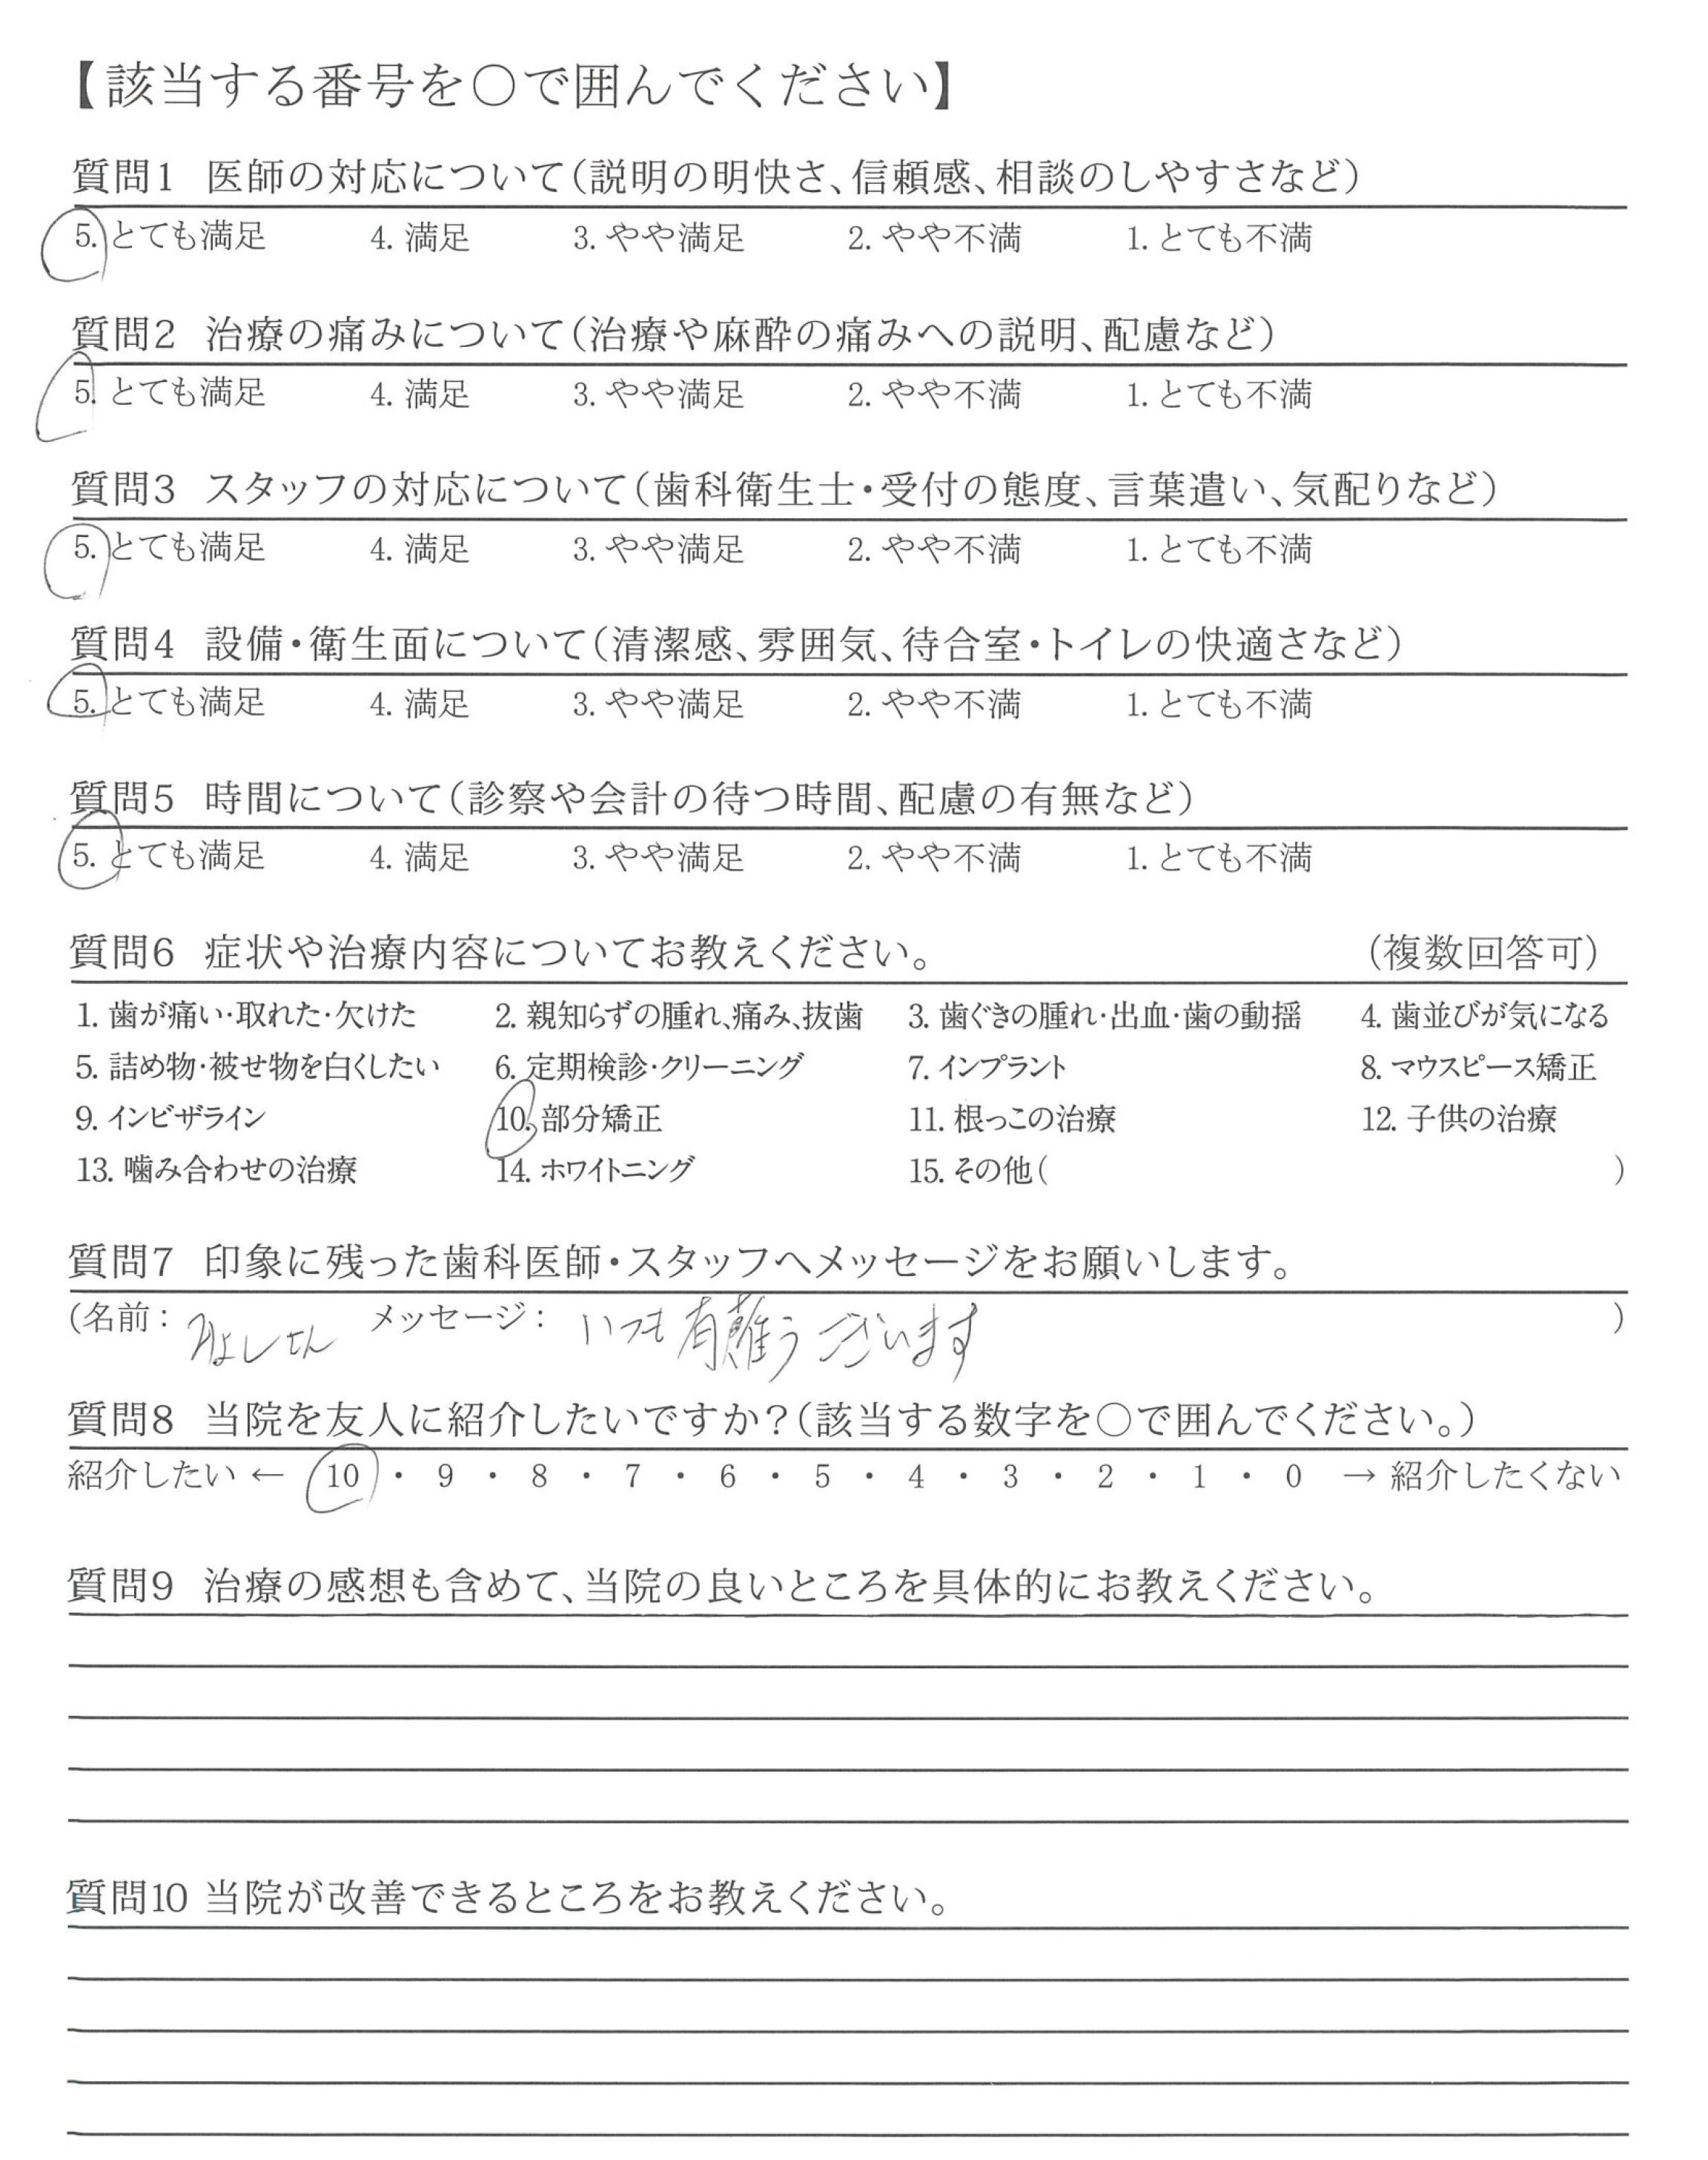 【該当する番号を○で囲んでください】
質問1 医師の対応について(説明の明快さ、信頼感、相談のしやすさなど)
5. とても満足 4. 満足 3. やや満足 2. やや不満 1. とても不満
質問2 治療の痛みについて(治療や麻酔の痛みへの説明、配慮など)
5. とても満足 4. 満足 3. やや満足 2. やや不満 1. とても不満
質問3 スタッフの対応について(歯科衛生士・受付の態度、言葉遣い、気配りなど)
5. とても満足 4. 満足 3. やや満足 2. やや不満 1. とても不満
質問4 設備・衛生面について(清潔感、雰囲気、待合室・トイレの快適さなど)
5. とても満足 4. 満足 3. やや満足 2. やや不満 1. とても不満
質問5 時間について(診察や会計の待つ時間、配慮の有無など)
5. とても満足 4. 満足 3. やや満足 2. やや不満 1. とても不満
質問6 症状や治療内容についてお教えください。 (複数回答可)
1. 歯が痛い・取れた・欠けた 2. 親知らずの腫れ、痛み、抜歯 3. 歯ぐきの腫れ・出血・歯の動揺 4. 歯並びが気になる
5. 詰め物・被せ物を白くしたい 6. 定期検診・クリーニング 7. インプラント 8. マウスピース矯正
9. インビザライン 10. 部分矯正 11. 根っこの治療 12. 子供の治療
13. 噛み合わせの治療 14. ホワイトニング 15. その他( )
質問7 印象に残った歯科医師・スタッフへメッセージをお願いします。
(名前: メッセージ: いつも有難うございます )
質問8 当院を友人に紹介したいですか?(該当する数字を○で囲んでください。)
紹介したい ← 10 ・ 9 ・ 8 ・ 7 ・ 6 ・ 5 ・ 4 ・ 3 ・ 2 ・ 1 ・ 0 → 紹介したくない
質問9 治療の感想も含めて、当院の良いところを具体的にお教えください。
質問10 当院が改善できるところをお教えください。